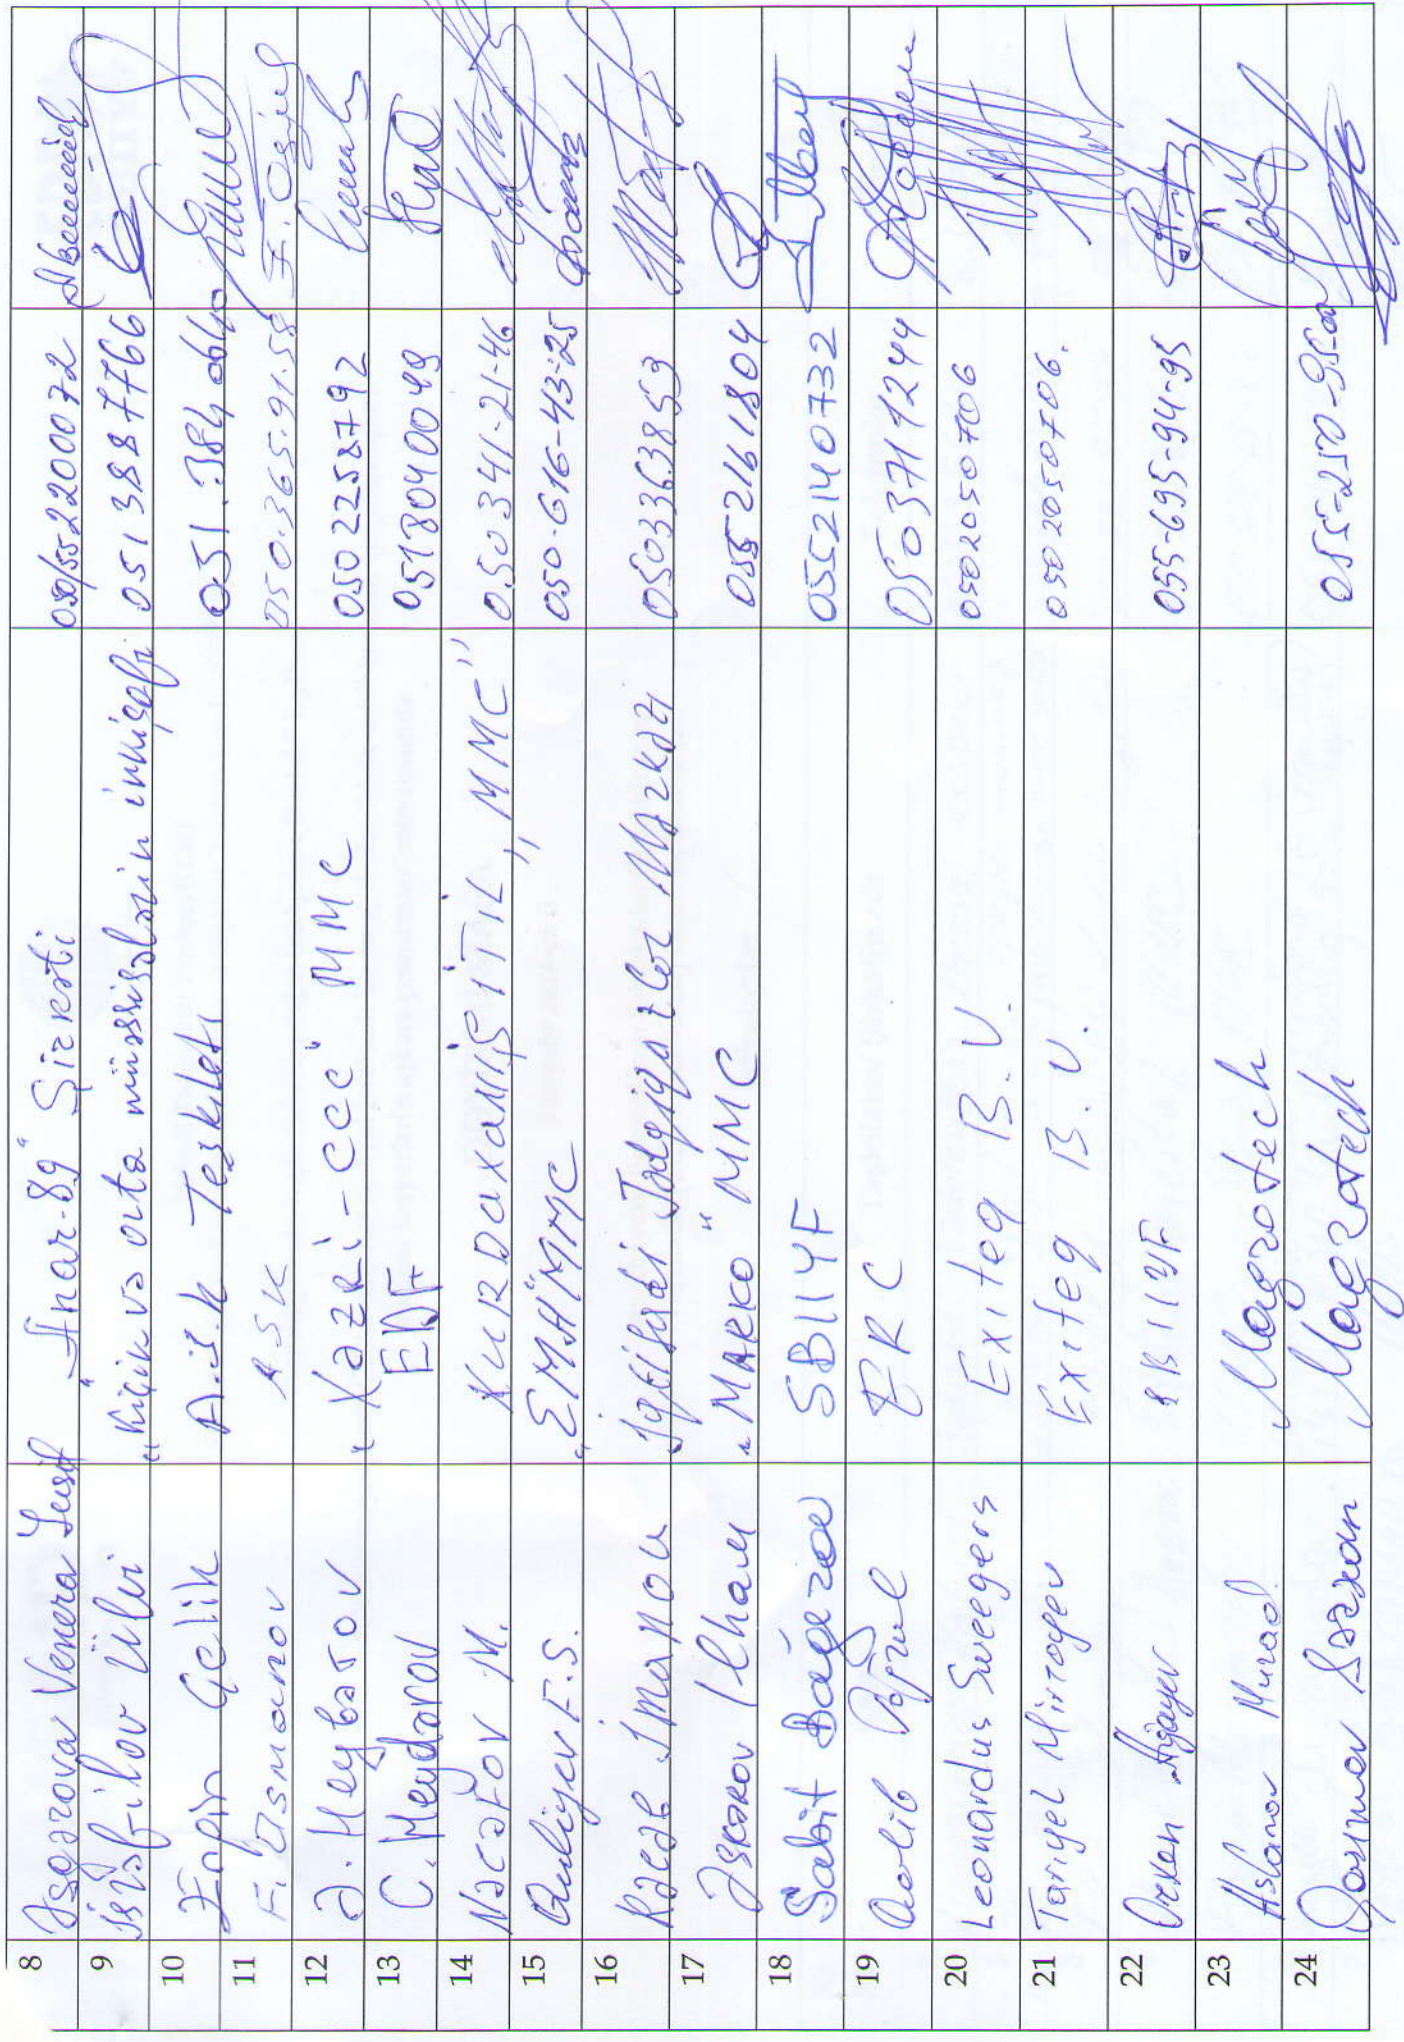 8 Əsgərova Venera „Anar-89“ Şirkəti 050/55 2200072
9 İsrafilov Ülvi „Kiçik və orta müəssisələrin inkişafı 051 388 77 66
10 Çelik A.S.K Teşkilatı 051.384 0640
11 F. Osmanov ASK 050.365.91.58 F. Osm
12 Ə. Heybətov „Xəzri-CCC“ MMC 050 225 87 92
13 C. Heydərov EDF 0518040049
14 Nəcəfov M. KURDAXANI,ŞİTİL „MMC“ 050 341-21-46
15 Quliyev F.S. „EMA“ MMC 050-616-43-25
16 Rəcəb İmanov İqtisadi Tədqiqatlar Mərkəzi 0503363853
17 Əsgərov İlham „MARKO“ MMC 0552161804
18 Sabit Bağırov SBİİYF 0552140732
19 ERC 0503711244
20 Leonardus Sweegers Exiteq B.V. 0502050706
21 Tariyel Mirzoyev Exiteq B.V. 0502050706.
22 Orxan Ağayev SBİİYF 055-695-94-95
23 Aslanov Murad Maqrotech
24 Maqrotech 055-250-95-00